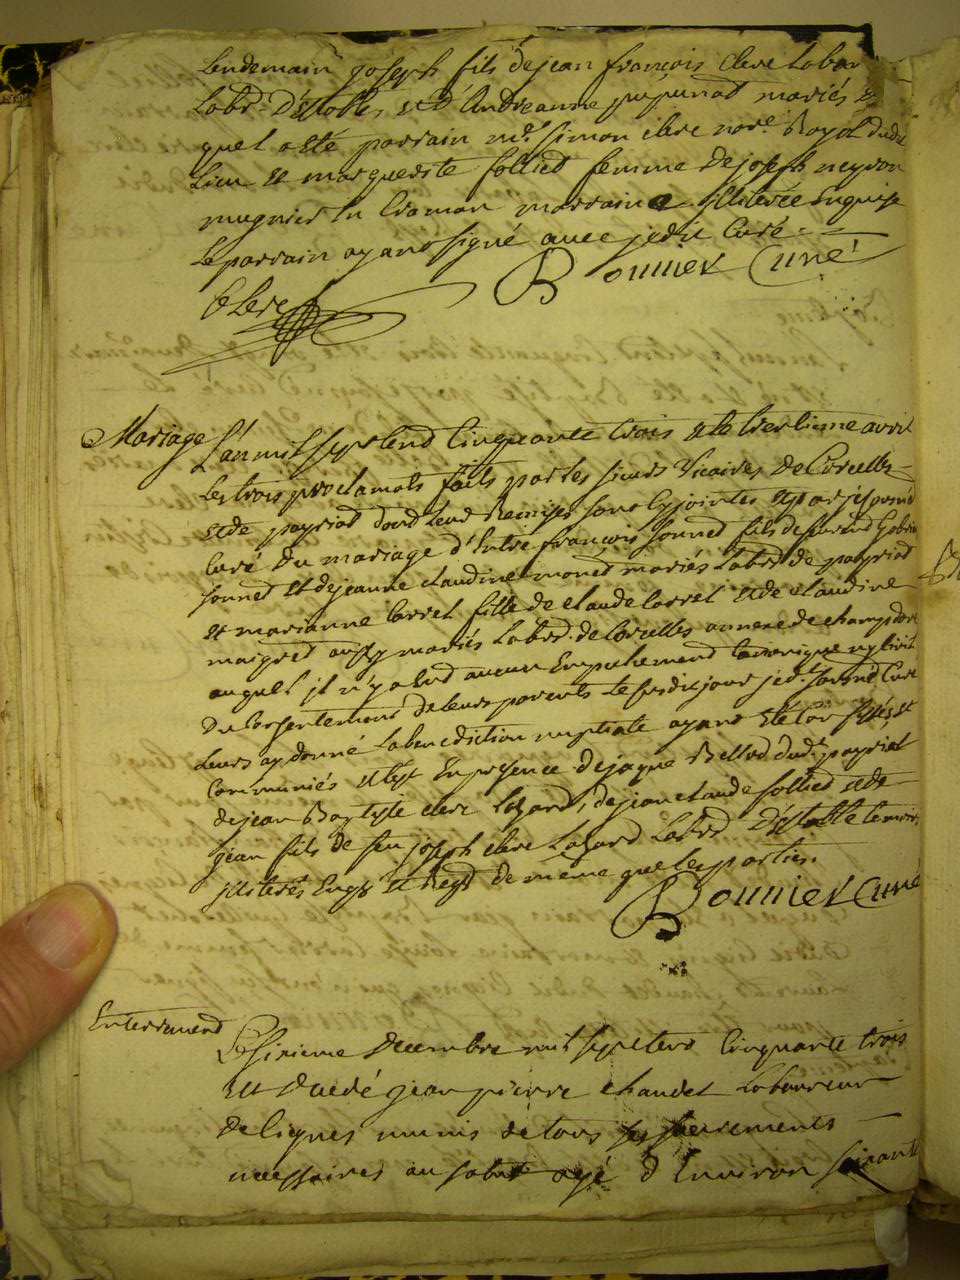 Lendemain joseph fils de jean francois clere Labor
Labr. D'Etables, et D'Andreanne pupunat mariés
quel a êté parrain mr. simon clere nore. Royal dudt
Lieu et marguerite follied femme de joseph neyron
mugnier En marraine illiterée Enquise
Le parrain ayant signé avec je dit Curé
Bonnier Curé
Clere
Mariage L'an mil sept cend cinquante trois et le treizieme avril
Les trois proclamats faits par les sieurs vicaires de Corcelles
et de payriat dond leur Remises sont cy jointes et par je soussd
Curé du mariage d'Entre francois sonned fils de
sonned et de jeanne claudine moned mariés Labrs de payriat
et marianne Carrel fille de claude Carrel et de claudine
maigred aussy mariés Labrd. de Corcelles annexe de champdor
auquel jl n'y a Eud aucun Empechement Canonique ny civil
Du Consentement de leurs parents Le susdit jour je dt. soussd Curé
Leurs ay donné La benediction nuptiale ayant êté Confessés et
Communiés Et En presence de jaque Bellod dudt payriat
de jean Baptiste clere Lazard, de jean claude follied et de
jean fils de feu joseph clere Lazard Labrd D'Etable temoins
jlliterés Enqs et Reqs de même que les parties.
Bonnier Curé
Enterremend Le sixieme Decembre mil sept cens cinquante trois
Est Decedé jean pierre chandet Laboureur
de Lignes munis de tous ses sacrements
necessaires au salut agé d'Environ soixante